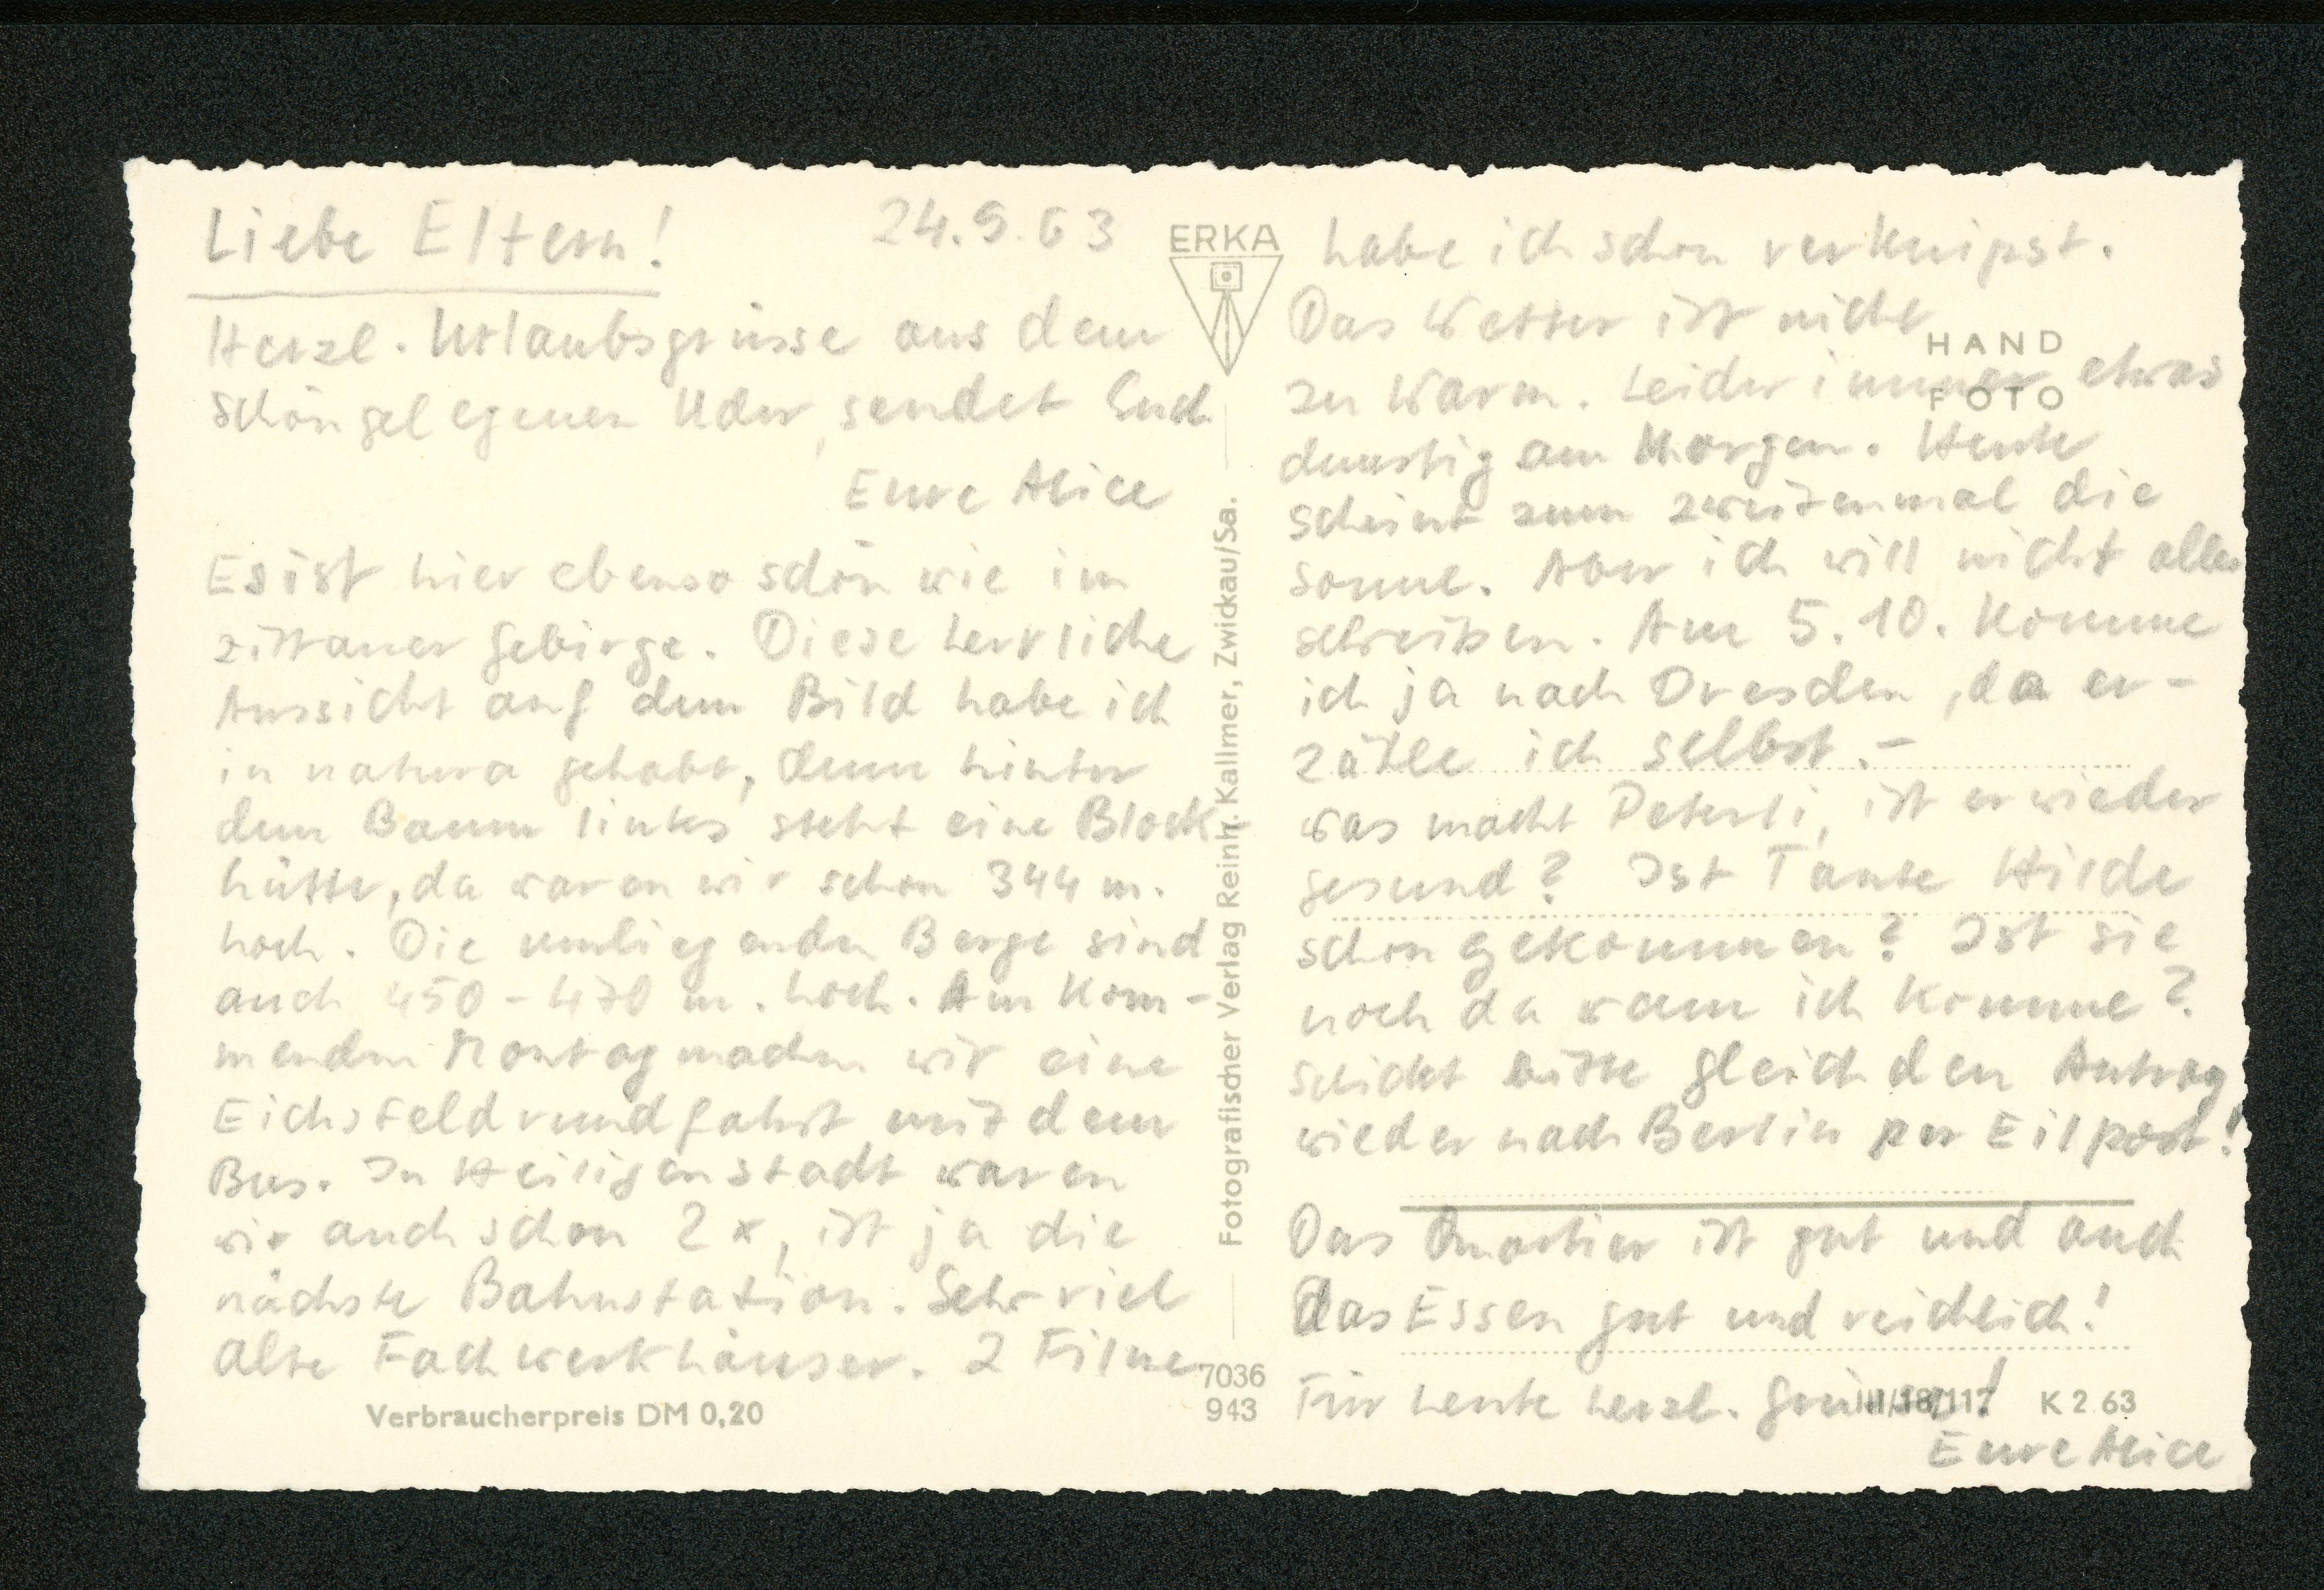 Liebe Eltern! 24.9.63
Herzl. Urlaubsgrüsse aus dem
schön gelegenen Uder, sendet Euch
Eure Alice
Es ist hier ebenso schön wie im
zittauer Gebirge. Diese herrliche
Aussicht auf dem Bild habe ich
in natura gehabt, denn hinter
dem Baum links steht eine Block-
hütte, da waren wir schon 344 m.
hoch. Die umliegenden Berge sind
auch 450 - 470 m. hoch. Am Kom-
menden Montag machen wir eine
Eichsfeldrundfahrt mit dem
Bus. In Heiligenstadt waren
wir auch schon 2 x, ist ja die
nächste Bahnstation. Sehr viel
alte Fachwerkhäuser. 2 Filme
Verbraucherpreis DM 0,20
ERKA
Fotografischer Verlag Reinh. Kallmer, Zwickau/Sa.
7036
943
habe ich schon verknipst.
Das Wetter ist nicht
HAND
FOTO
zu warm. Leider immer etwas
dunstig am Morgen. Heute
scheint zum zweitenmal die
Sonne. Aber ich will nicht alles
schreiben. Am 5.10. Komme
ich ja nach Dresden, da er-
zähle ich selbst. -
was macht Peterli, ist er wieder
gesund? Ist Tante Hilde
schon gekommen? Ist sie
noch da wann ich komme?
Schickt bitte gleich den Antrag
wieder nach Berlin per Eilpost!
Das Quartier ist gut und auch
das Essen gut und reichlich!
Für heute herzl. Grüsse!
III/18/117 K 2 63
Eure Alice